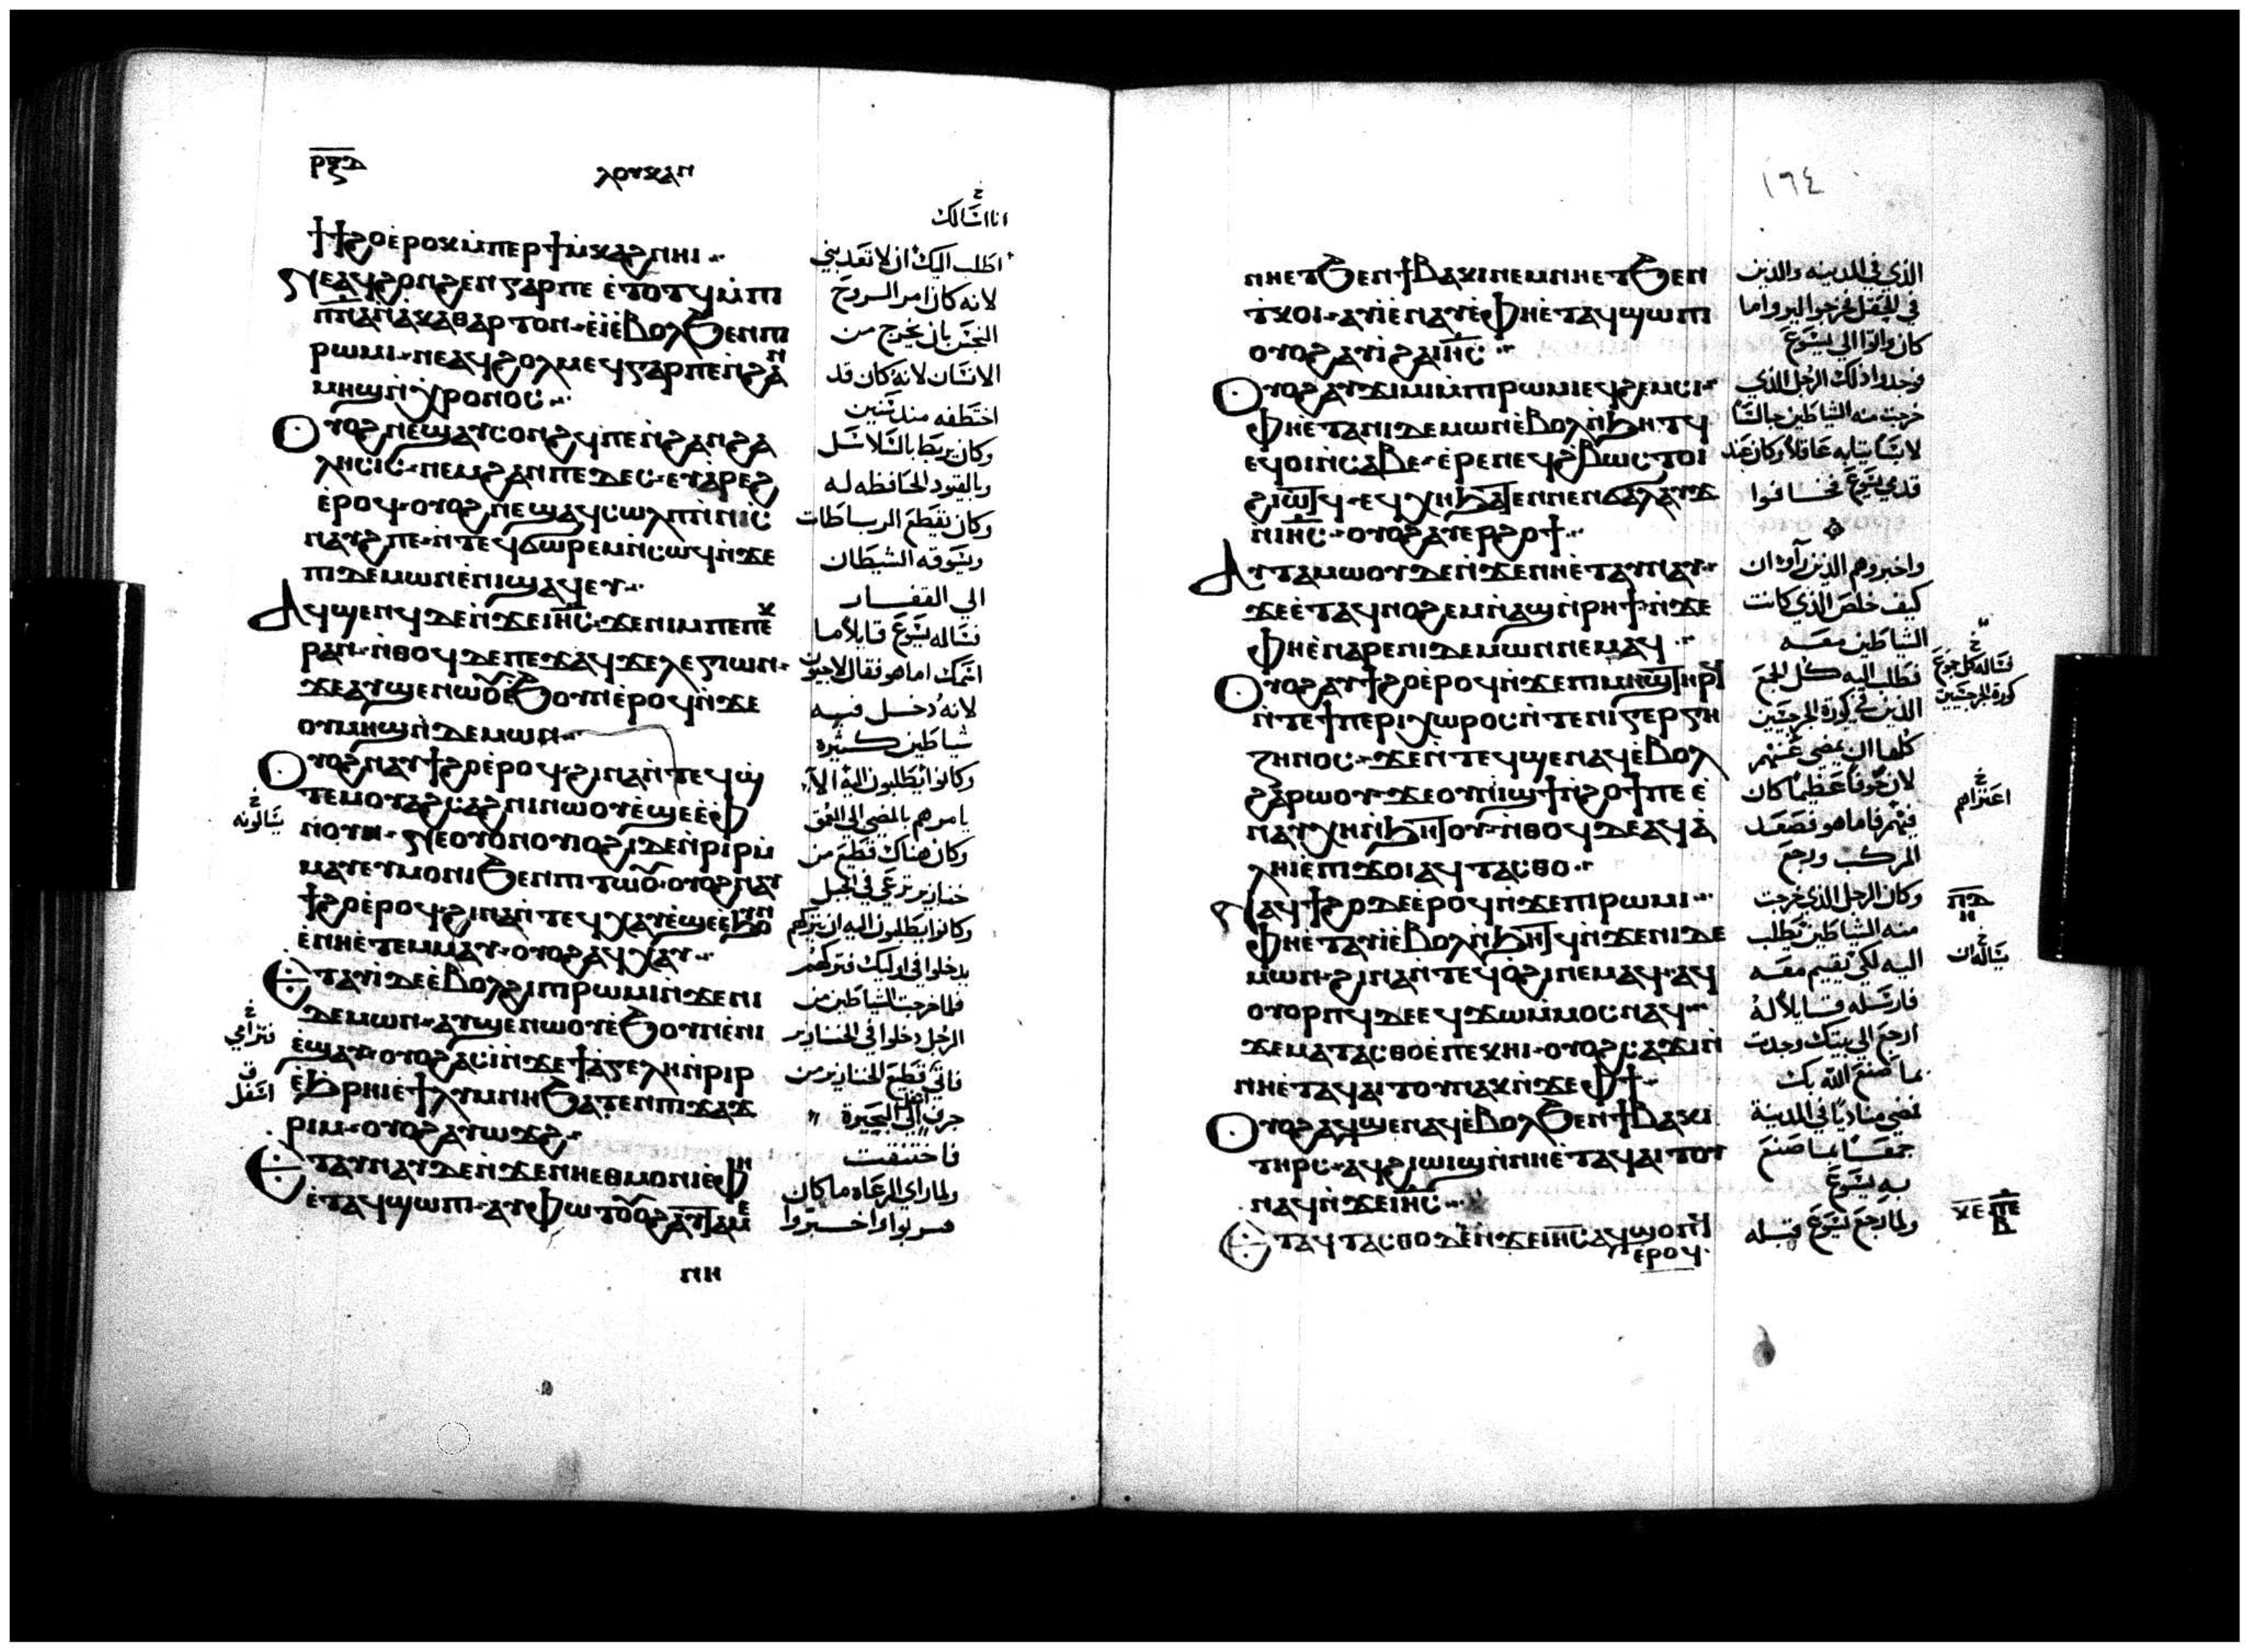 ⲣⲝⲇ
ⲗⲟⲩⲕⲁⲛ
ϯϯϩⲟ ⲉ̀ⲣⲟⲕ ⲙ̀ⲡⲉⲣϯⲙ̀ⲕⲁϩ ⲛⲏⲓ
ⲛⲉⲁϥϩⲟⲛϩⲉⲛ ⲅⲁⲣ ⲡⲉ ⲉ̀ⲧⲟⲧϥ ⲙ̀ⲡⲓ
ⲡ̅ⲛ̅ⲁ̅ ⲛ̀ⲁⲕⲁⲑⲁⲣⲧⲟⲛ ⲉ̀ⲓ̀ ⲉ̀ⲃⲟⲗ ϧⲉⲛ ⲡⲓ
ⲣⲱⲙⲓ ⲛⲉⲁϥϩⲟⲗⲙⲉϥ ⲅⲁⲣ ⲡⲉ ⲛ̀ϩⲁⲛ
ⲙⲏϣ ⲛ̀ⲭⲣⲟⲛⲟⲥ
ⲟⲩⲟϩ ⲛⲉϣⲁⲩⲥⲟⲛϩϥ ⲡⲉ ⲛ̀ϩⲁⲛϩⲁ
ⲗⲏⲥⲓⲥ ⲛⲉⲙ ϩⲁⲛⲡⲉⲇⲉⲥ ⲉⲩⲁ̀ⲣⲉϩ
ⲉ̀ⲣⲟϥ ⲟⲩⲟϩ ⲛⲉϣⲁϥⲥⲱⲗⲡ ⲛ̀ⲛⲓⲥ̀
ⲛⲁⲩϩ ⲡⲉ ⲛ̀ⲧⲉϥϭⲱⲣⲉⲙ ⲛ̀ⲥⲱϥ ⲛ̀ϫⲉ
ⲡⲓⲇⲉⲙⲱⲛ ⲉ̀ⲛⲓϣⲁϥⲉⲩ
ⲁϥϣⲉⲛϥ ⲇⲉ ⲛ̀ϫⲉ ⲓⲏ̅ⲥ̅ ϫⲉ ⲛⲓⲙ ⲡⲉ ⲡⲉⲕ
ⲣⲁⲛ ⲛ̀ⲑⲟϥ ⲇⲉ ⲡⲉϫⲁϥ ϫⲉ ⲗⲉⲅⲓⲱⲛ
ϫⲉ ⲁⲩϣⲉⲛⲱⲟⲩ ⲉ̀ϧⲟⲩⲛ ⲉ̀ⲣⲟϥ ⲛ̀ϫⲉ
ⲟⲩⲙⲏϣ ⲛ̀ⲇⲉⲙⲱⲛ
ⲟⲩⲟϩ ⲛⲁⲩϯϩⲟ ⲉ̀ⲣⲟϥ ϩⲓⲛⲁ ⲛ̀ⲧⲉϥϣ̀
ⲧⲉⲙⲟⲩⲁϩⲥⲁϩⲛⲓ ⲛⲱⲟⲩ ⲉ̀ϣⲉ ⲉ̀ⲫ
ⲛⲟⲩⲛ ⲛⲉⲟⲩⲟⲛ ⲟⲩⲟϩⲓ ⲇⲉ ⲛ̀ⲣⲓⲣ ⲙ̀
ⲙⲁⲩ ⲉⲩⲙⲟⲛⲓ ϧⲉⲛ ⲡⲓⲧⲱⲟⲩ ⲟⲩⲟϩ ⲛⲁⲩ
ϯϩⲟ ⲉ̀ⲣⲟϥ ϩⲓⲛⲁ ⲛ̀ⲧⲉϥⲭⲁⲩ ⲉ̀ϣⲉ ⲉ̀ϧⲟⲩⲛ
ⲉ̀ⲛⲏ ⲉ̀ⲧⲉⲙⲙⲁⲩ ⲟⲩⲟϩ ⲁϥⲭⲁⲩ
ⲉⲧⲁⲩⲓ̀ ⲇⲉ ⲉ̀ⲃⲟⲗ ϩⲓ ⲡⲓⲣⲱⲙⲓ ⲛ̀ϫⲉ ⲛⲓ
ⲇⲉⲙⲱⲛ ⲁⲩϣⲉⲛⲱⲟⲩ ⲉ̀ϧⲟⲩⲛ ⲉ̀ⲛⲓ
ⲉ̀ϣⲁⲩ ⲟⲩⲟϩ ⲁⲥⲓ̀ ⲛ̀ϫⲉ ϯⲁ̀ⲅⲉⲗⲏ ⲛ̀ⲣⲓⲣ
ⲉ̀ϧⲣⲏⲓ ⲉ̀ϯⲗⲩⲙⲛⲏ ϧⲁⲧⲉⲛ ⲡⲓϫⲁϫ
ⲣⲓⲙ ⲟⲩⲟϩ ⲁⲩⲱϫϩ
ⲉⲧⲁⲩⲛⲁⲩ ⲇⲉ ⲛ̀ϫⲉ ⲛⲏ ⲉⲑⲙⲟⲛⲓ ⲉ̀ⲫⲏ
ⲉ̀ⲧⲁϥϣⲱⲡⲓ ⲁⲩⲫⲱⲧ ⲟⲩⲟϩ ⲁⲩⲧⲁⲙⲉ
ⲛⲏ
انا اسالك
اطلب اليك ان لا تعذبني
لانه كان امر الروح
النجس بان يخرج من
الانسان لانه كان قد
اختطفه منذ سنين
وكان يربط بالسلاسل
وبالقيود الحافظه له
وكان يقطع الرباطات
ويسوقه الشيطان
الي القفار
فساله يسوع قايلا ما
اسمك اما هو فقال لاجيون
لانه دخل فيه
شياطين كثيره
وكانوا يطلبون اليه الا
يامرهم بالمضي الي العمق
وكان هناك قطيع من
خنازير ترعي في الجبل
وكانوا يطلبون اليه ان يتركهم
يدخلوا في اوليك فتركهم
فلما خرجت الشياطين من
الرجل دخلوا في الخنازير
فاتي قطيع الخنازير من
جرف الي البحيرة
فاختنقت
ولما راي الرعاه ما كان
هربوا واخبروا
يسالونه
فترامي
اسفل
١٦٤
ⲛⲏ ⲉⲧϧⲉⲛ ϯⲃⲁⲕⲓ ⲛⲉⲙ ⲛⲏ ⲉⲧϧⲉⲛ
ⲧ̀ⲕⲟⲓ ⲁⲩⲓ̀ ⲉ̀ⲛⲁⲩ ⲉ̀ⲫⲏ ⲉ̀ⲧⲁϥϣⲱⲡⲓ
ⲟⲩⲟϩ ⲁⲩⲓ̀ ϩⲁ ⲓⲏ̅ⲥ̅
ⲟⲩⲟϩ ⲁⲩϫⲓⲙⲓ ⲙ̀ⲡⲓⲣⲱⲙⲓ ⲉϥϩⲉⲙⲥⲓ
ⲫⲏ ⲉ̀ⲧⲁ ⲛⲓⲇⲉⲙⲱⲛ ⲉ̀ⲃⲟⲗ ⲛ̀ϧⲏⲧϥ
ⲉϥⲟⲓ ⲛ̀ⲥⲁⲃⲉ ⲉ̀ⲣⲉ ⲛⲉϥϩⲃⲱⲥ ⲧⲟⲓ
ϩⲓⲱⲧϥ ⲉϥⲭⲏ ϧⲁⲧⲉⲛ ⲛⲉⲛϭⲁⲗⲁⲩϫ
ⲛ̀ⲓⲏ̅ⲥ̅ ⲟⲩⲟϩ ⲁⲩⲉⲣϩⲟϯ
ⲁⲩⲧⲁⲙⲱⲟⲩ ⲇⲉ ⲛ̀ϫⲉ ⲛⲏ ⲉ̀ⲧⲁⲩⲛⲁⲩ
ϫⲉ ⲉ̀ⲧⲁϥⲛⲟϩⲉⲙ ⲛ̀ⲁϣ ⲛ̀ⲣⲏϯ ⲛ̀ϫⲉ
ⲫⲏ ⲉ̀ⲛⲁⲣⲉ ⲛⲓⲇⲉⲙⲱⲛ ⲛⲉⲙⲁϥ
ⲟⲩⲟϩ ⲁⲩϯϩⲟ ⲉ̀ⲣⲟϥ ⲛ̀ϫⲉ ⲡⲓⲙⲏϣ ⲧⲏⲣϥ
ⲛ̀ⲧⲉ ϯⲡⲉⲣⲓⲭⲱⲣⲟⲥ ⲛ̀ⲧⲉ ⲛⲓⲅⲉⲣⲅⲏ
ⲍⲏⲛⲟⲥ ϫⲉ ⲛ̀ⲧⲉϥϣⲉⲛⲁϥ ⲉ̀ⲃⲟⲗ
ϩⲁⲣⲱⲟⲩ ϫⲉ ⲟⲩⲛⲓϣϯ ⲛ̀ϩⲟϯ ⲡⲉ ⲉ̀
ⲛⲁⲩⲭⲏ ⲛ̀ϧⲏⲧⲟⲩ ⲛ̀ⲑⲟϥ ⲇⲉ ⲁϥⲁ̀
ⲗⲏⲓ ⲉ̀ⲡϫⲟⲓ ⲁϥⲧⲁⲥⲑⲟ
ⲛⲁϥϯϩⲟ ⲇⲉ ⲉ̀ⲣⲟϥ ⲛ̀ϫⲉ ⲡⲓⲣⲱⲙⲓ
ⲫⲏ ⲉⲧⲁⲩⲓ̀ ⲉ̀ⲃⲟⲗ ⲛ̀ϧⲏⲧϥ ⲛ̀ϫⲉ ⲛⲓⲇⲉ
ⲙⲱⲛ ϩⲓⲛⲁ ⲛ̀ⲧⲉϥⲟ̀ϩⲓ ⲛⲉⲙⲁϥ ⲁϥ
ⲟⲩⲟⲣⲡϥ ⲇⲉ ⲉϥϫⲱ ⲙ̀ⲙⲟⲥ ⲛⲁϥ
ϫⲉ ⲙⲁⲧⲁⲥⲑⲟ ⲉ̀ⲡⲉⲕⲏⲓ ⲟⲩⲟϩ ⲥⲁϫⲓ ⲛ̀
ⲛⲏ ⲉ̀ⲧⲁϥⲁⲓⲧⲟⲩ ⲛⲁⲕ ⲛ̀ϫⲉ ⲫϯ
ⲟⲩⲟϩ ⲁϥϣⲉⲛⲁϥ ⲉ̀ⲃⲟⲗ ϧⲉⲛ ϯⲃⲁⲕⲓ
ⲧⲏⲣⲥ ⲁϥϩⲓⲱⲓϣ ⲛ̀ⲛⲏ ⲉ̀ⲧⲁϥⲁⲓⲧⲟⲩ
ⲛⲁϥ ⲛ̀ϫⲉ ⲓⲏ̅ⲥ̅
ⲉⲧⲁϥⲧⲁⲥⲑⲟ ⲇⲉ ⲛ̀ϫⲉ ⲓⲏ̅ⲥ̅ ⲁϥϣⲟⲡϥ
ⲉⲣⲟϥ
الذي في المدينه والذين
في الحقل فخرجوا ليروا ما
كان واتوا الي يسوع
فوجدوا ذلك الرجل الذي
خرجت منه الشياطين جالسا
لابسا ثيابه عاقلا وكان عند
قدمي يسوع فخافوا
واخبروهم الذين رأوا ان
كيف خلص الذي كانت
الشياطين معه
فطلب اليه كل الجمع
الذين في كورة الجرجسيين
كلها ان يمضي عنهم
لان خوفا عظيما كان
فيهم فاما هو فصعد
المركب ورجع
وكان الرجل الذي خرجت
منه الشياطين يطلب
اليه لكي يقيم معه
فارسله قايلا له
ارجع الي بيتك وحدث
بما صنع الله بك
فمضي مناديا في المدينة
جمعا بما صنع
به يسوع
ولما رجع يسوع قبله
فساله كل جموع
كورة الجرجسيين
اعترام
ⲡⲇ
ⲏ
يساله ان
ⲕⲉ ⲡⲉ
ⲃ